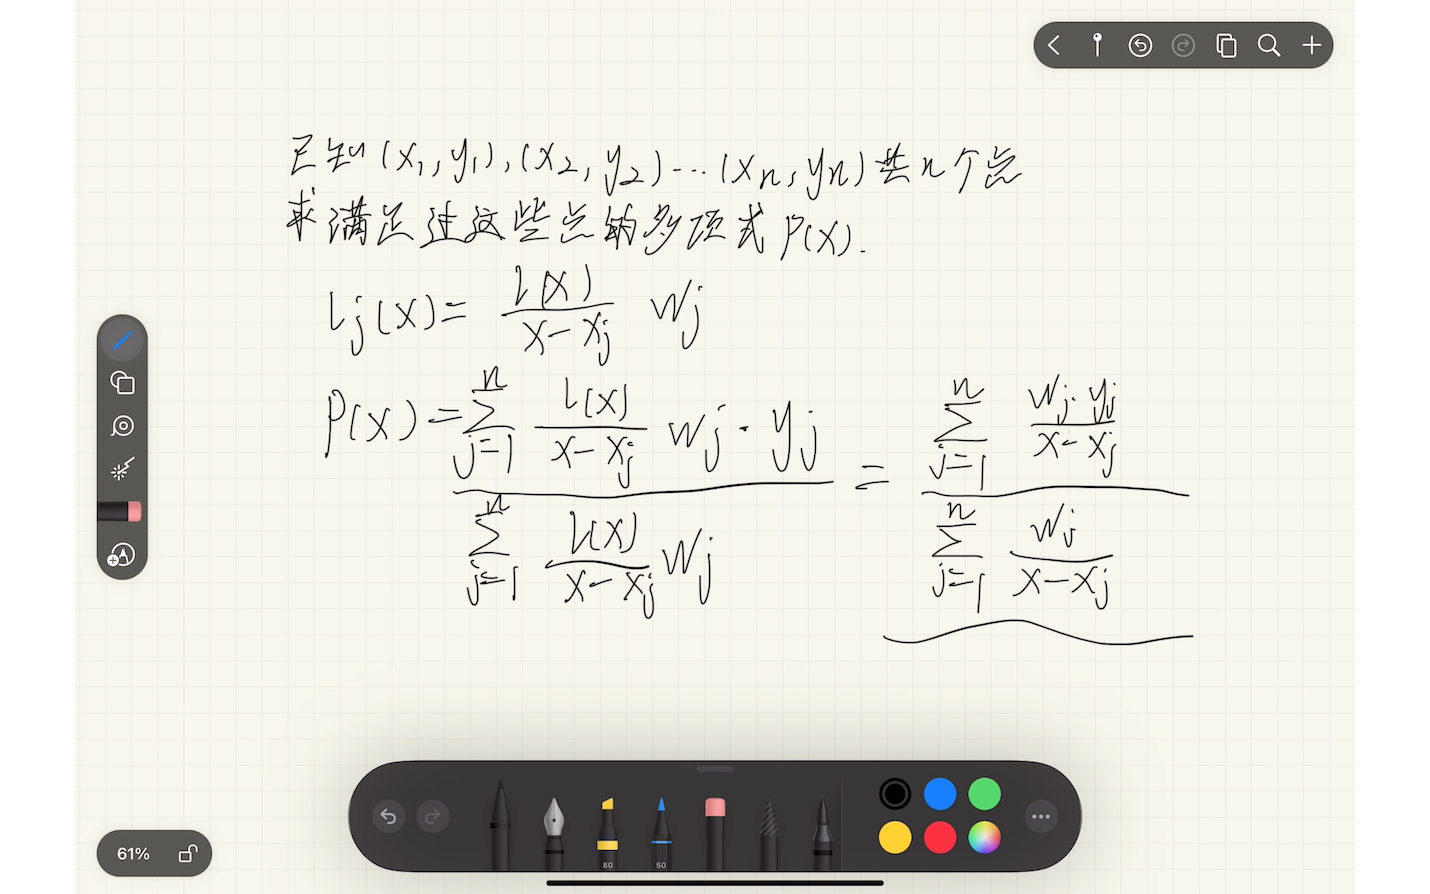 已知(x₁,y₁),(x₂,y₂)...(xₙ,yₙ)共n个点
求满足过这些点的多项式P(x).
lⱼ(x)= l(x)/(x-xⱼ) wⱼ
P(x)= (∑ⱼ₌₁ⁿ l(x)/(x-xⱼ) wⱼ·yⱼ)/(∑ⱼ₌₁ⁿ l(x)/(x-xⱼ) wⱼ) = (∑ⱼ₌₁ⁿ wⱼ·yⱼ/(x-xⱼ))/(∑ⱼ₌₁ⁿ wⱼ/(x-xⱼ))
80
50
61%